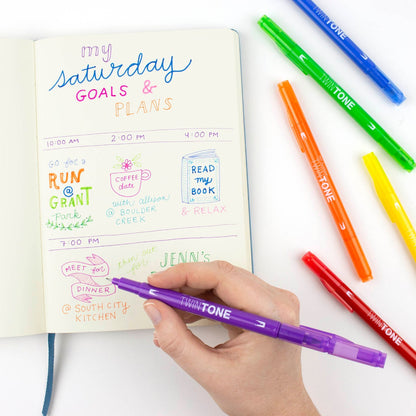 my
saturday
GOALS &
PLANS
10:00 AM
2:00 PM
4:00 PM
GO for a
RUN
@
GRANT
Park
COFFEE
date
with allison
@ BOULDER
CREEK
READ
my
BOOK
& RELAX
7:00 PM
MEET for
DINNER
@ SOUTH CITY
KITCHEN
then out for
JENN'S
TWINTONE
TWINTONE
TWINTONE
TWINTONE
TWINTONE
TWINTONE